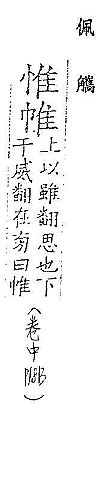 佩觿
惟帷上以雖翻思也下
于威翻在旁曰帷
(卷中)